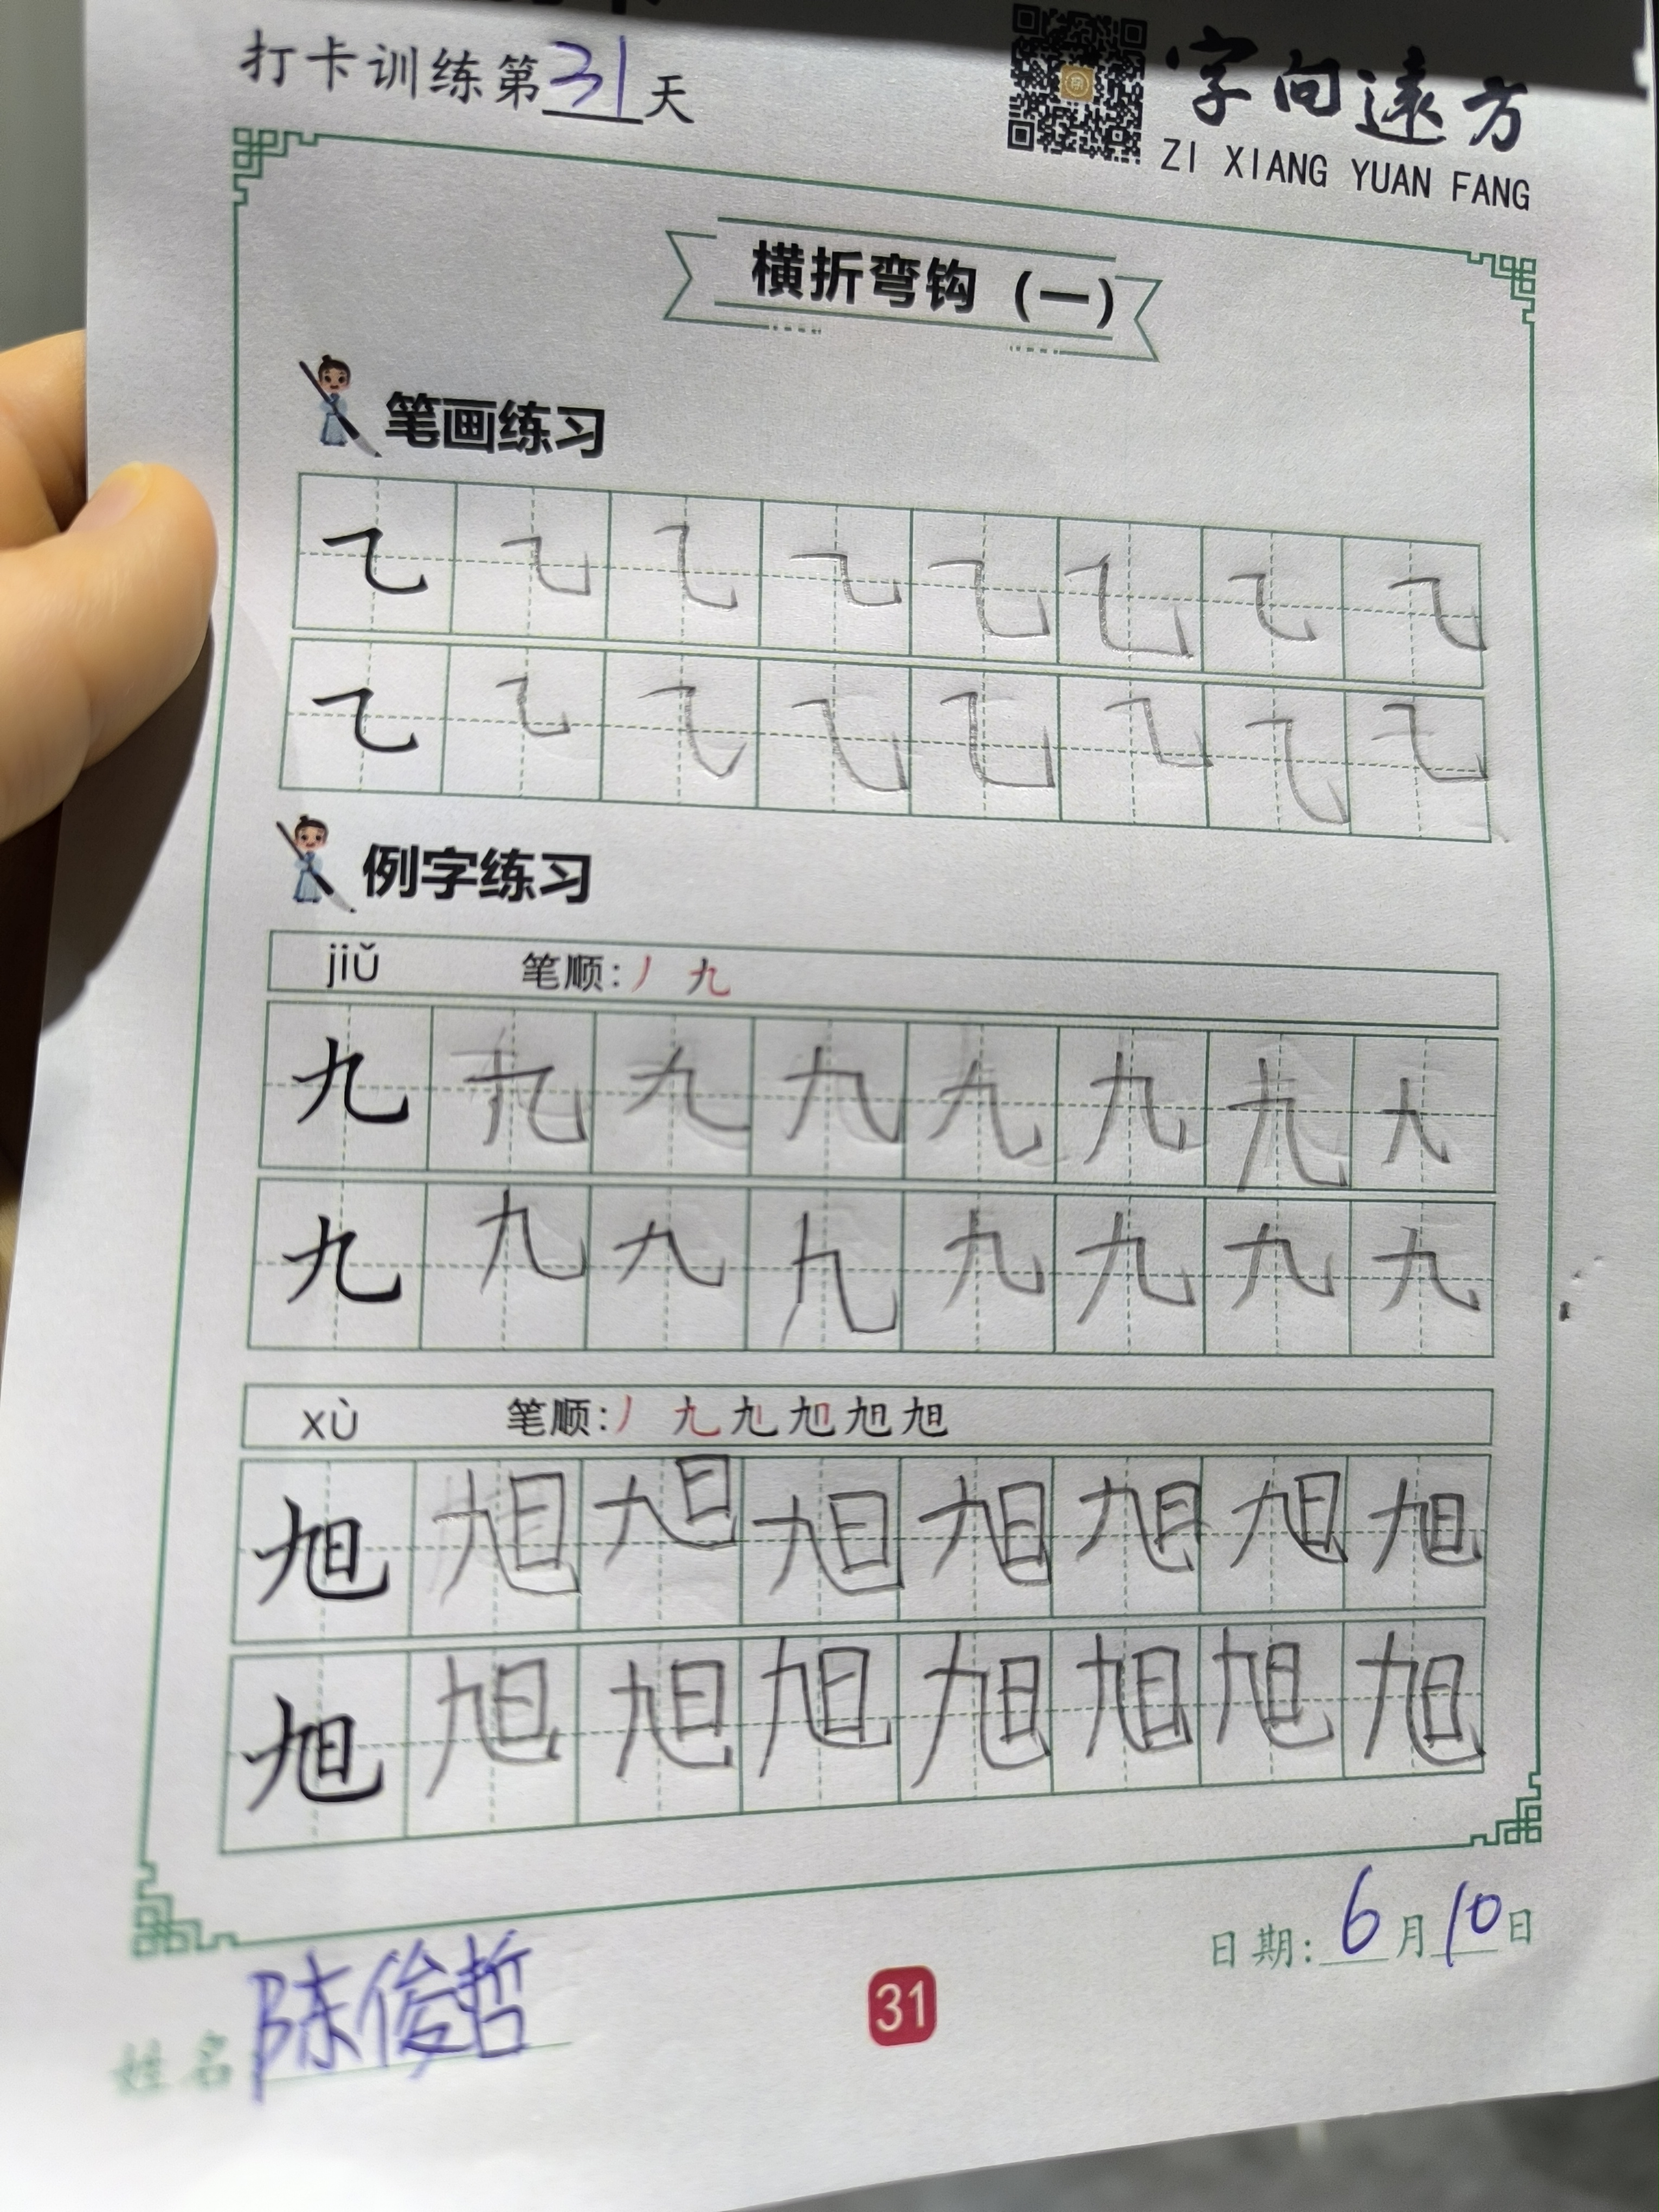 打卡训练第31天
字向遠方
ZI XIANG YUAN FANG
横折弯钩（一）
笔画练习
㇈ ㇈ ㇈ ㇈ ㇈ ㇈ ㇈ ㇈
㇈ ㇈ ㇈ ㇈ ㇈ ㇈ ㇈ ㇈
例字练习
jiǔ 笔顺：丿 九
九 九 九 九 九 九 九 九
九 九 九 九 九 九 九 九
xù 笔顺：丿 九 旭 旭 旭 旭
旭 旭 旭 旭 旭 旭 旭 旭
旭 旭 旭 旭 旭 旭 旭 旭
日期：6月10日
姓名 陈俊哲
31